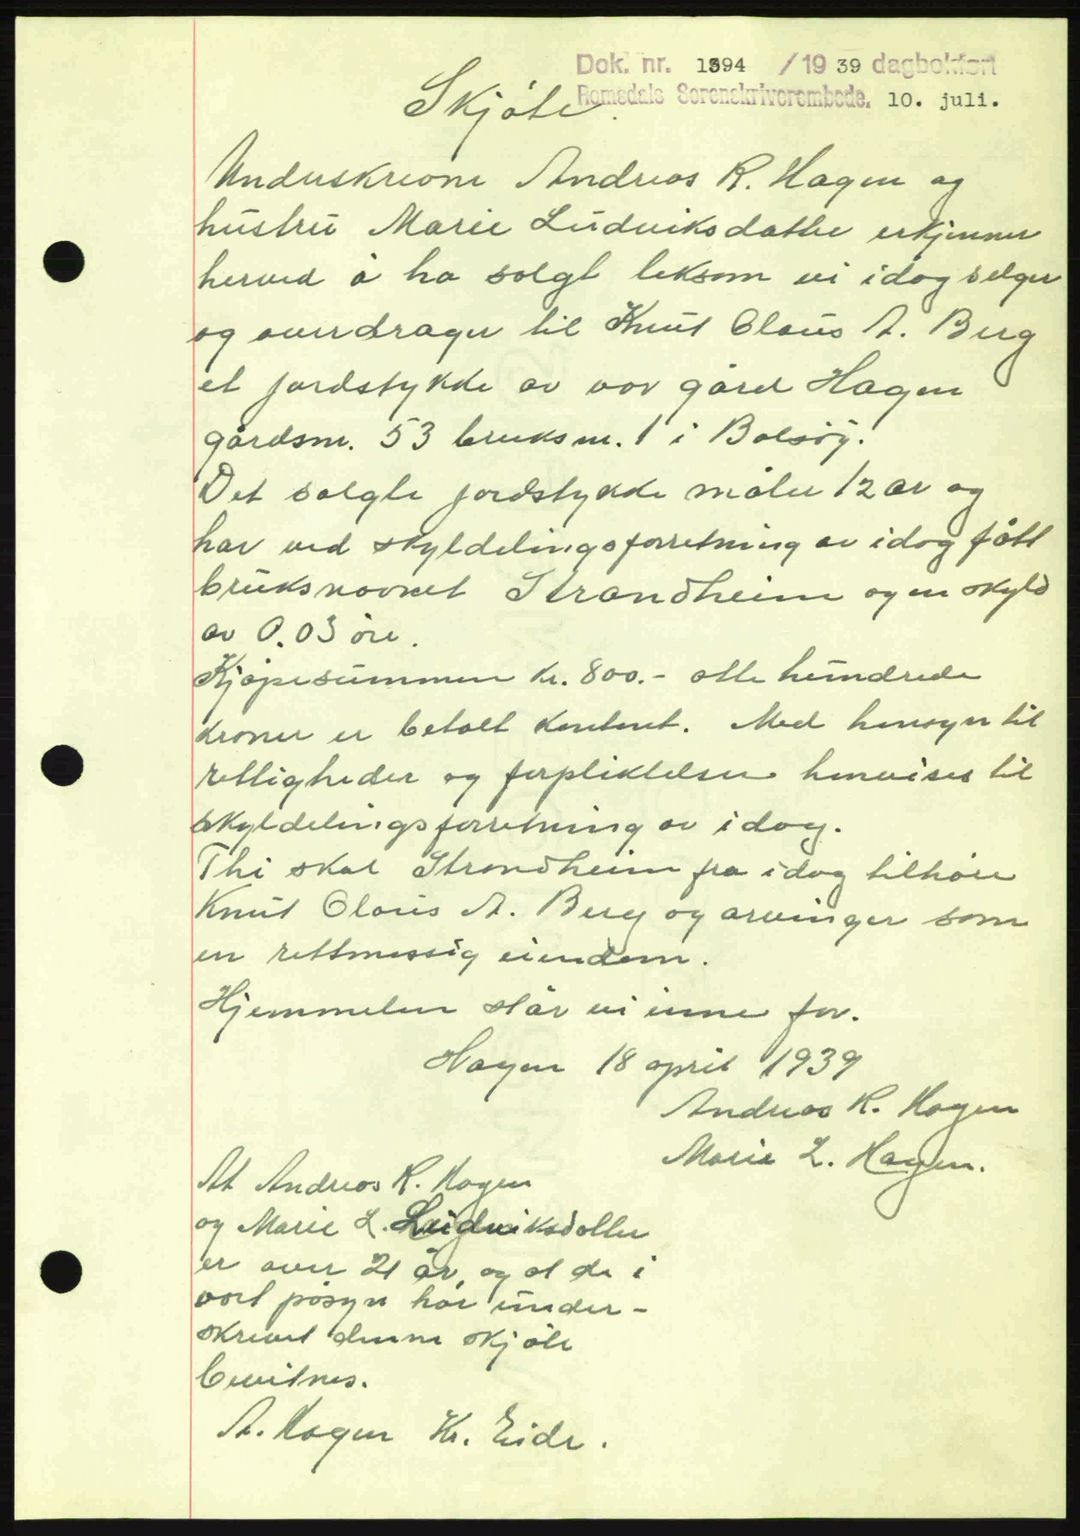 Dok. nr. 1394 /19 39 dagbokført
Romsdals Sorenskriverembede. 10. juli.
Skjøte.
Underskrevne Andreas R. Hagen og
hustru Marie Ludviksdatter erkjenner
herved å ha solgt liksom vi idag selger
og overdrager til Knut Olaus A. Berg
et jordstykke av vor gård Hagen
gårdsnr. 53 bruksnr. 1 i Bolsøy.
Det solgte jordstykke måler 12 ar og
har ved skyldelingsforretning av idag fått
bruksnavnet Strandheim og en skyld
av 0.03 øre.
Kjøpesummen kr. 800.- otte hundrede
kroner er betalt kontant. Med hensyn til
rettigheder og forpliktelser henvises til
skyldelingsforretning av idag.
Thi skal Strandheim fra idag tilhøre
Knut Olaus A. Berg og arvinger som
en rettmessig eiendom.
Hjemmelen står vi inne for.
Hagen 18 april 1939
Andreas R. Hagen
Marie L. Hagen.
At Andreas R. Hagen
og Marie L. Ludviksdatter
er over 21 år, og at de i
vort påsyn har under-
skrevet denne skjøte
bevitnes.
A. Hagen Kr. Eide.